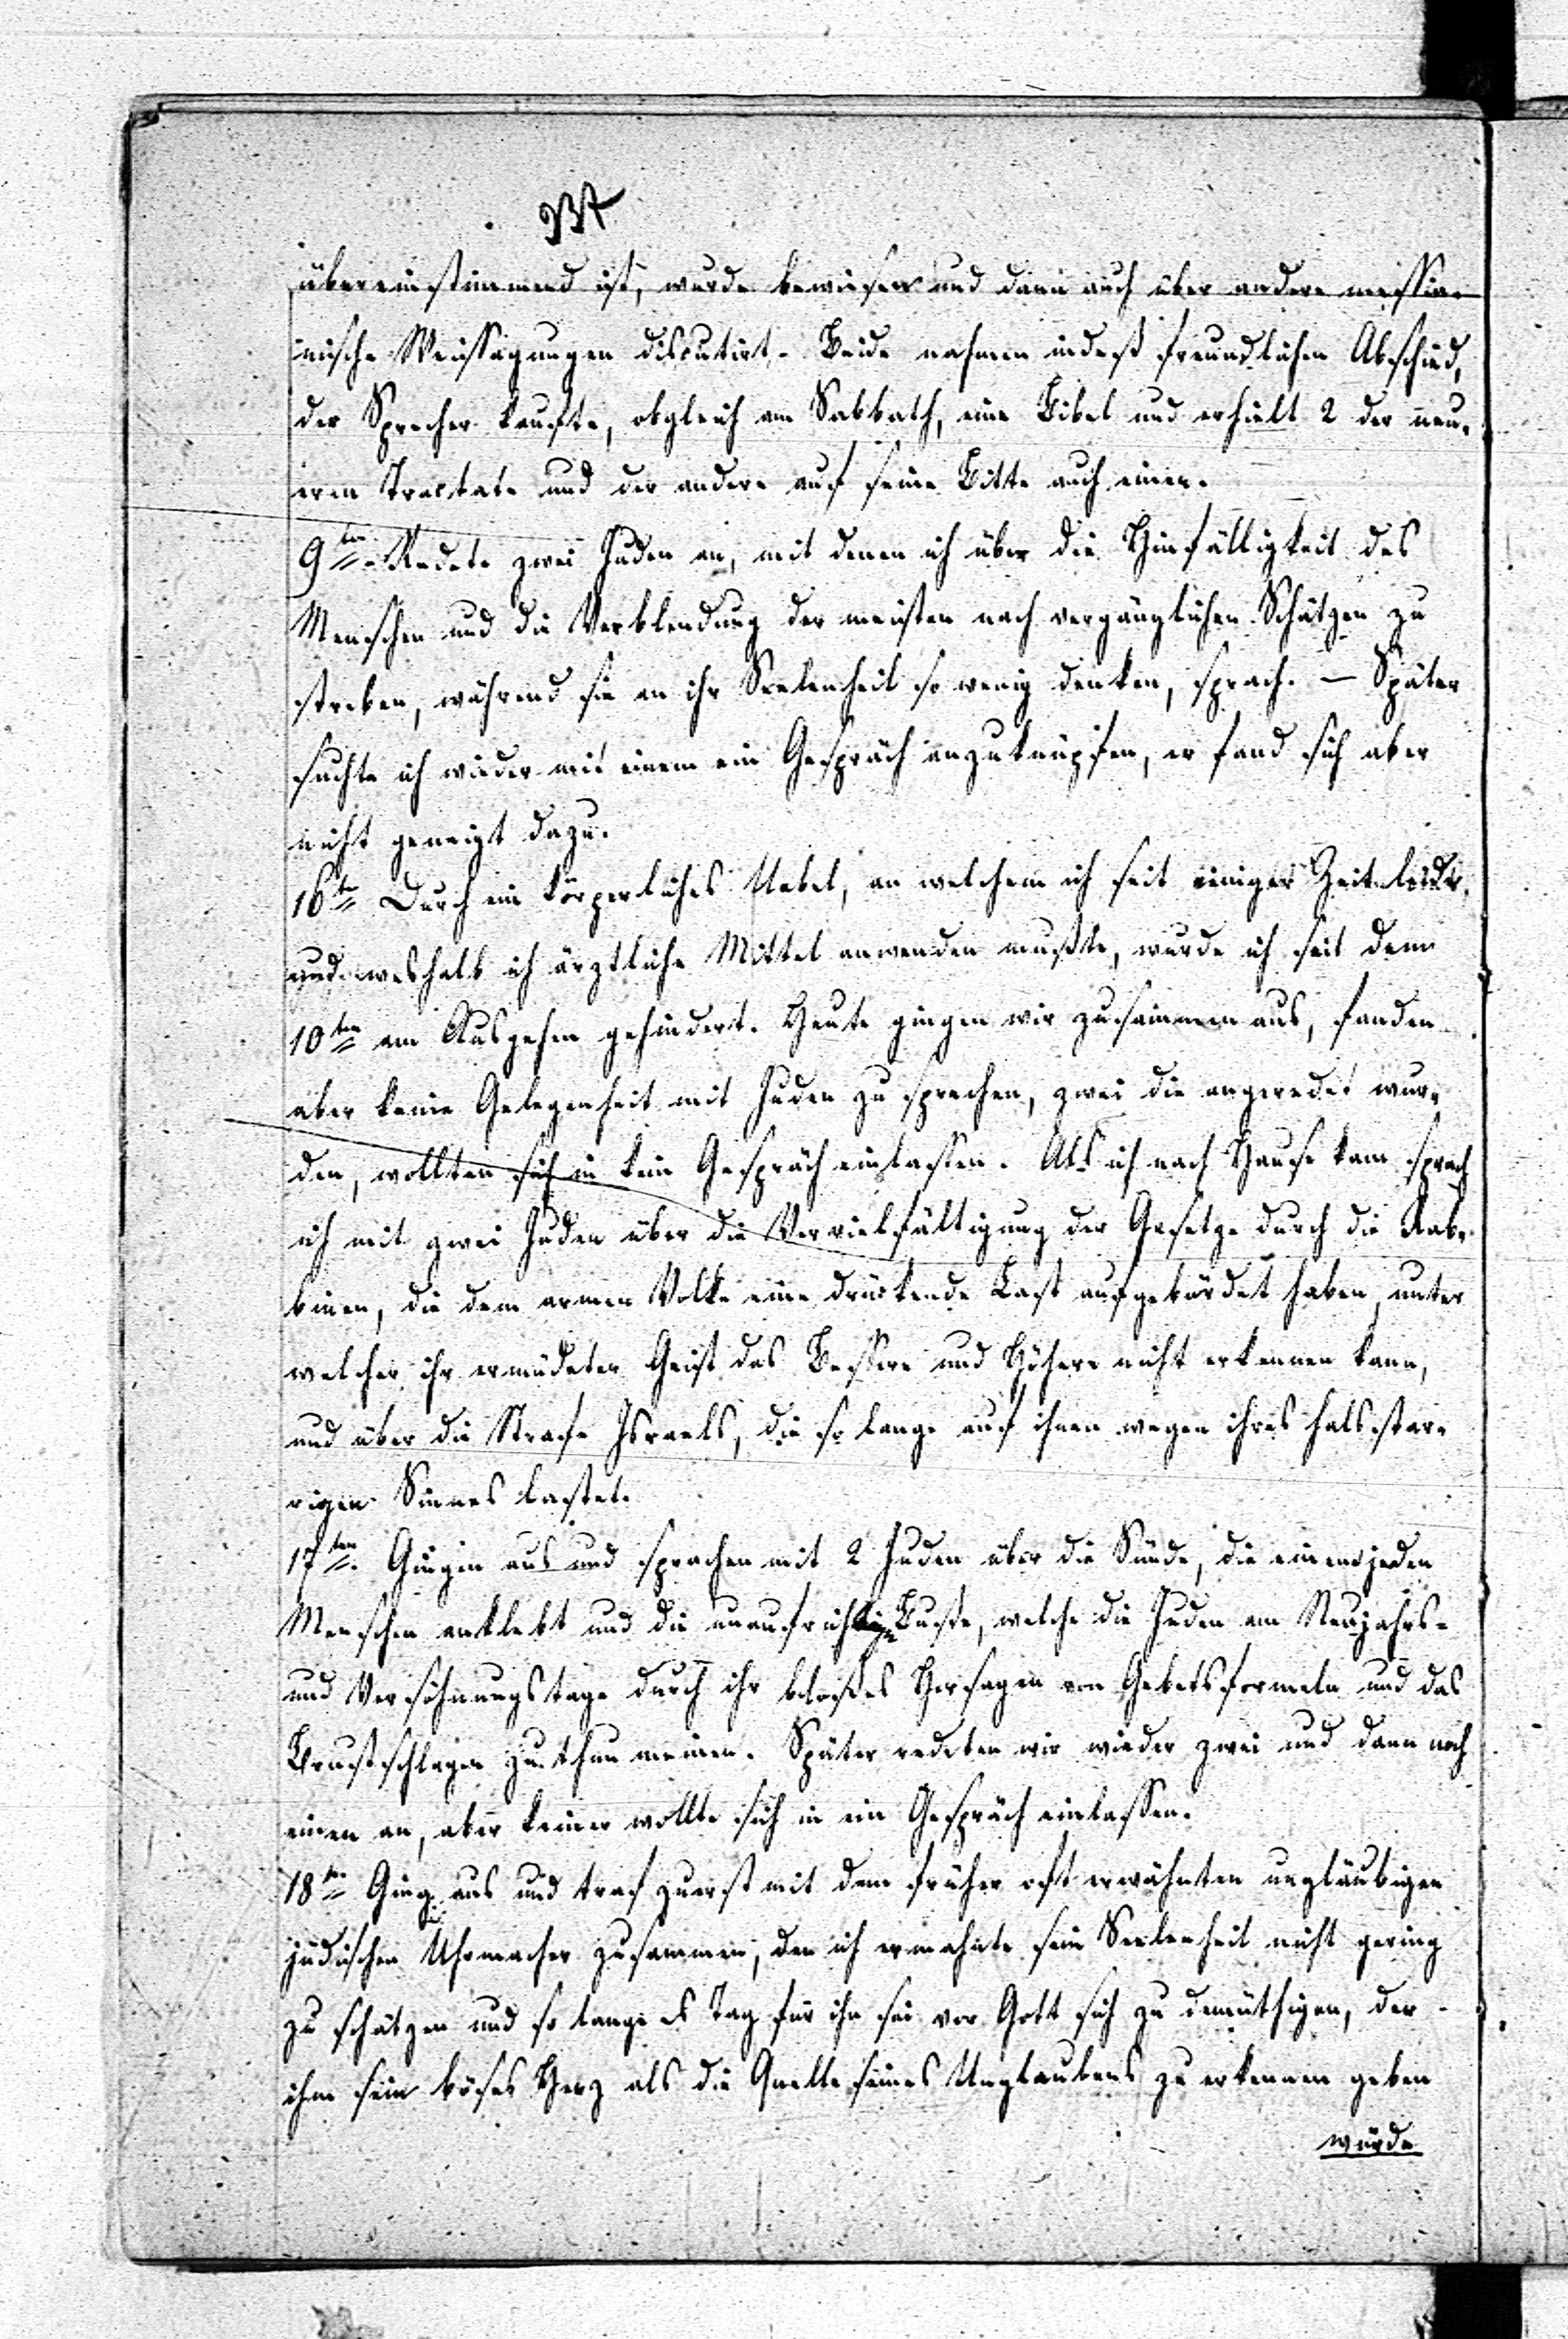 übereinstimmend ist, wurde bewiesen und dann auch über andere messia-
nische Weissagungen disputirt. Beide nahmen indeß freundlichen Abschied,
der Sprecher kaufte, obgleich am Sabbath, eine Bibel und erhielt 2 der neu-
eren Tractate und der andere auf seine Bitte auch einen.
9ten. Redete zwei Juden an, mit denen ich über die Hinfälligkeit des
Menschen und die Verblendung der meisten nach vergänglichen Schätzen zu
streben, während sie an ihr Seelenheil so wenig denken, sprach. – Später
suchte ich wieder mit einem ein Gespräch anzuknüpfen, er fand sich aber
nicht geneigt dazu.
16ten Durch ein körperliches Uebel, an welchem ich seit einiger Zeit leide,
und weshalb ich ärztliche Mittel anwenden mußte, wurde ich seit dem
10ten am Ausgehen gehindert. Heute gingen wir zusammen aus, fanden
aber keine Gelegenheit mit Juden zu sprechen, zwei die angeredet wur-
den, wollten sich in kein Gespräch einlassen. Als ich nach Hause kam sprach
ich mit zwei Juden über die Vervielfältigung der Gesetze durch die Rab-
binen, die dem armen Volke eine drückende Last aufgebürdet haben, unter
welcher ihr ermüdeter Geist das Bessere und Höhere nicht erkennen kann,
und über die Strafe Israels, die so lange auf ihnen wegen ihres halsstar-
rigen Sinnes lastet.
17ten. Gingen aus und sprachen mit 2 Juden über die Sünde, die einem jeden
Menschen anklebt und die unaufrichtige Buße, welche die Juden am Neujahrs-
und Versöhnungstage durch ihr bloßes Hersagen von Gebetsformeln und das
Brustschlagen zu thun meinen. Später redeten wir wieder zwei und dann noch
einen an, aber keiner wollte sich in ein Gespräch einlassen.
18ten Ging aus und traf zuerst mit dem früher oft erwähnten ungläubigen
jüdischen Uhrmacher zusammen, den ich ermahnte sein Seelenheil nicht gering
zu schätzen und so lange es Tag für ihn sei vor Gott sich zu demüthigen, der
ihm sein böses Herz als die Quelle seines Unglaubens zu erkennen geben
würde